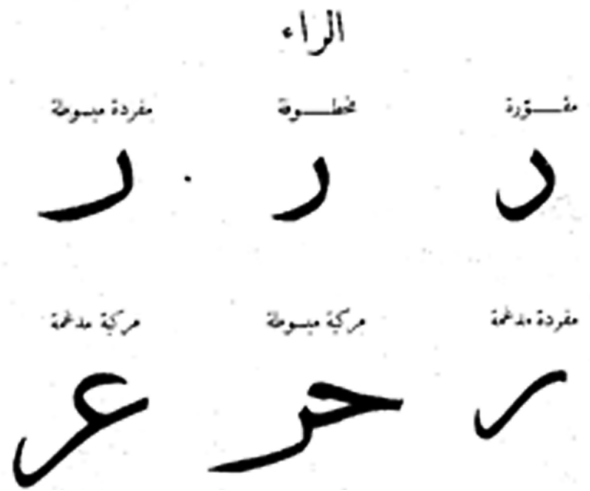 الراء
مقـــوّرة مخطـــوفة مفردة مبسوطة
ر ر ر
مفردة مدغمة مركبة مبسوطة مركبة مدغمة
ر حر عر